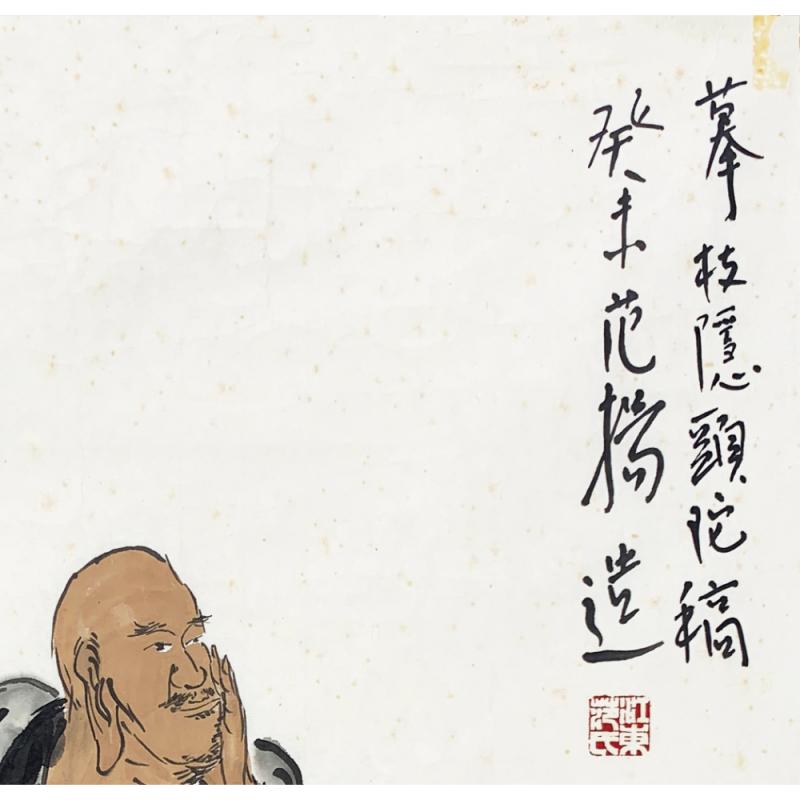 摹枝隱頭陀稿
癸未范揚造
江東范氏